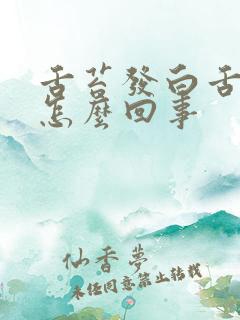 舌苔發白舌
怎麼回事
仙香夢
未經同意禁止轉載